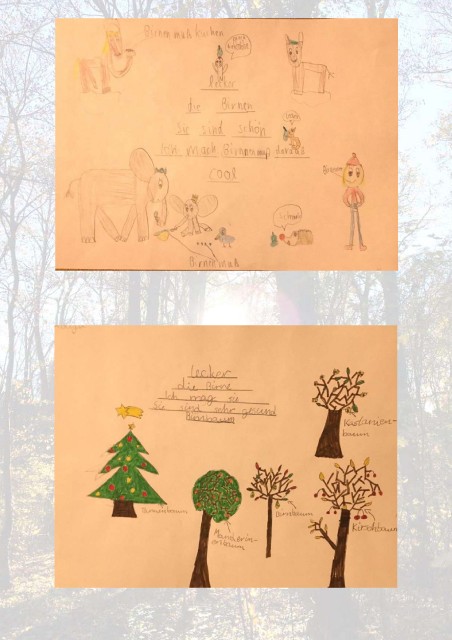 Birnenmußkuchen
lecker
die Birnen
Sie sind schön
Ich mach Birnenmuß daraus
cool
Birnenmuß
lecker
die Birne
Ich mag sie
Sie sind sehr gesund
Birnbaum
Kastanien-
baum
Tannenbaum
Mandarin-
enbaum
Birnbaum
Kirschbaum